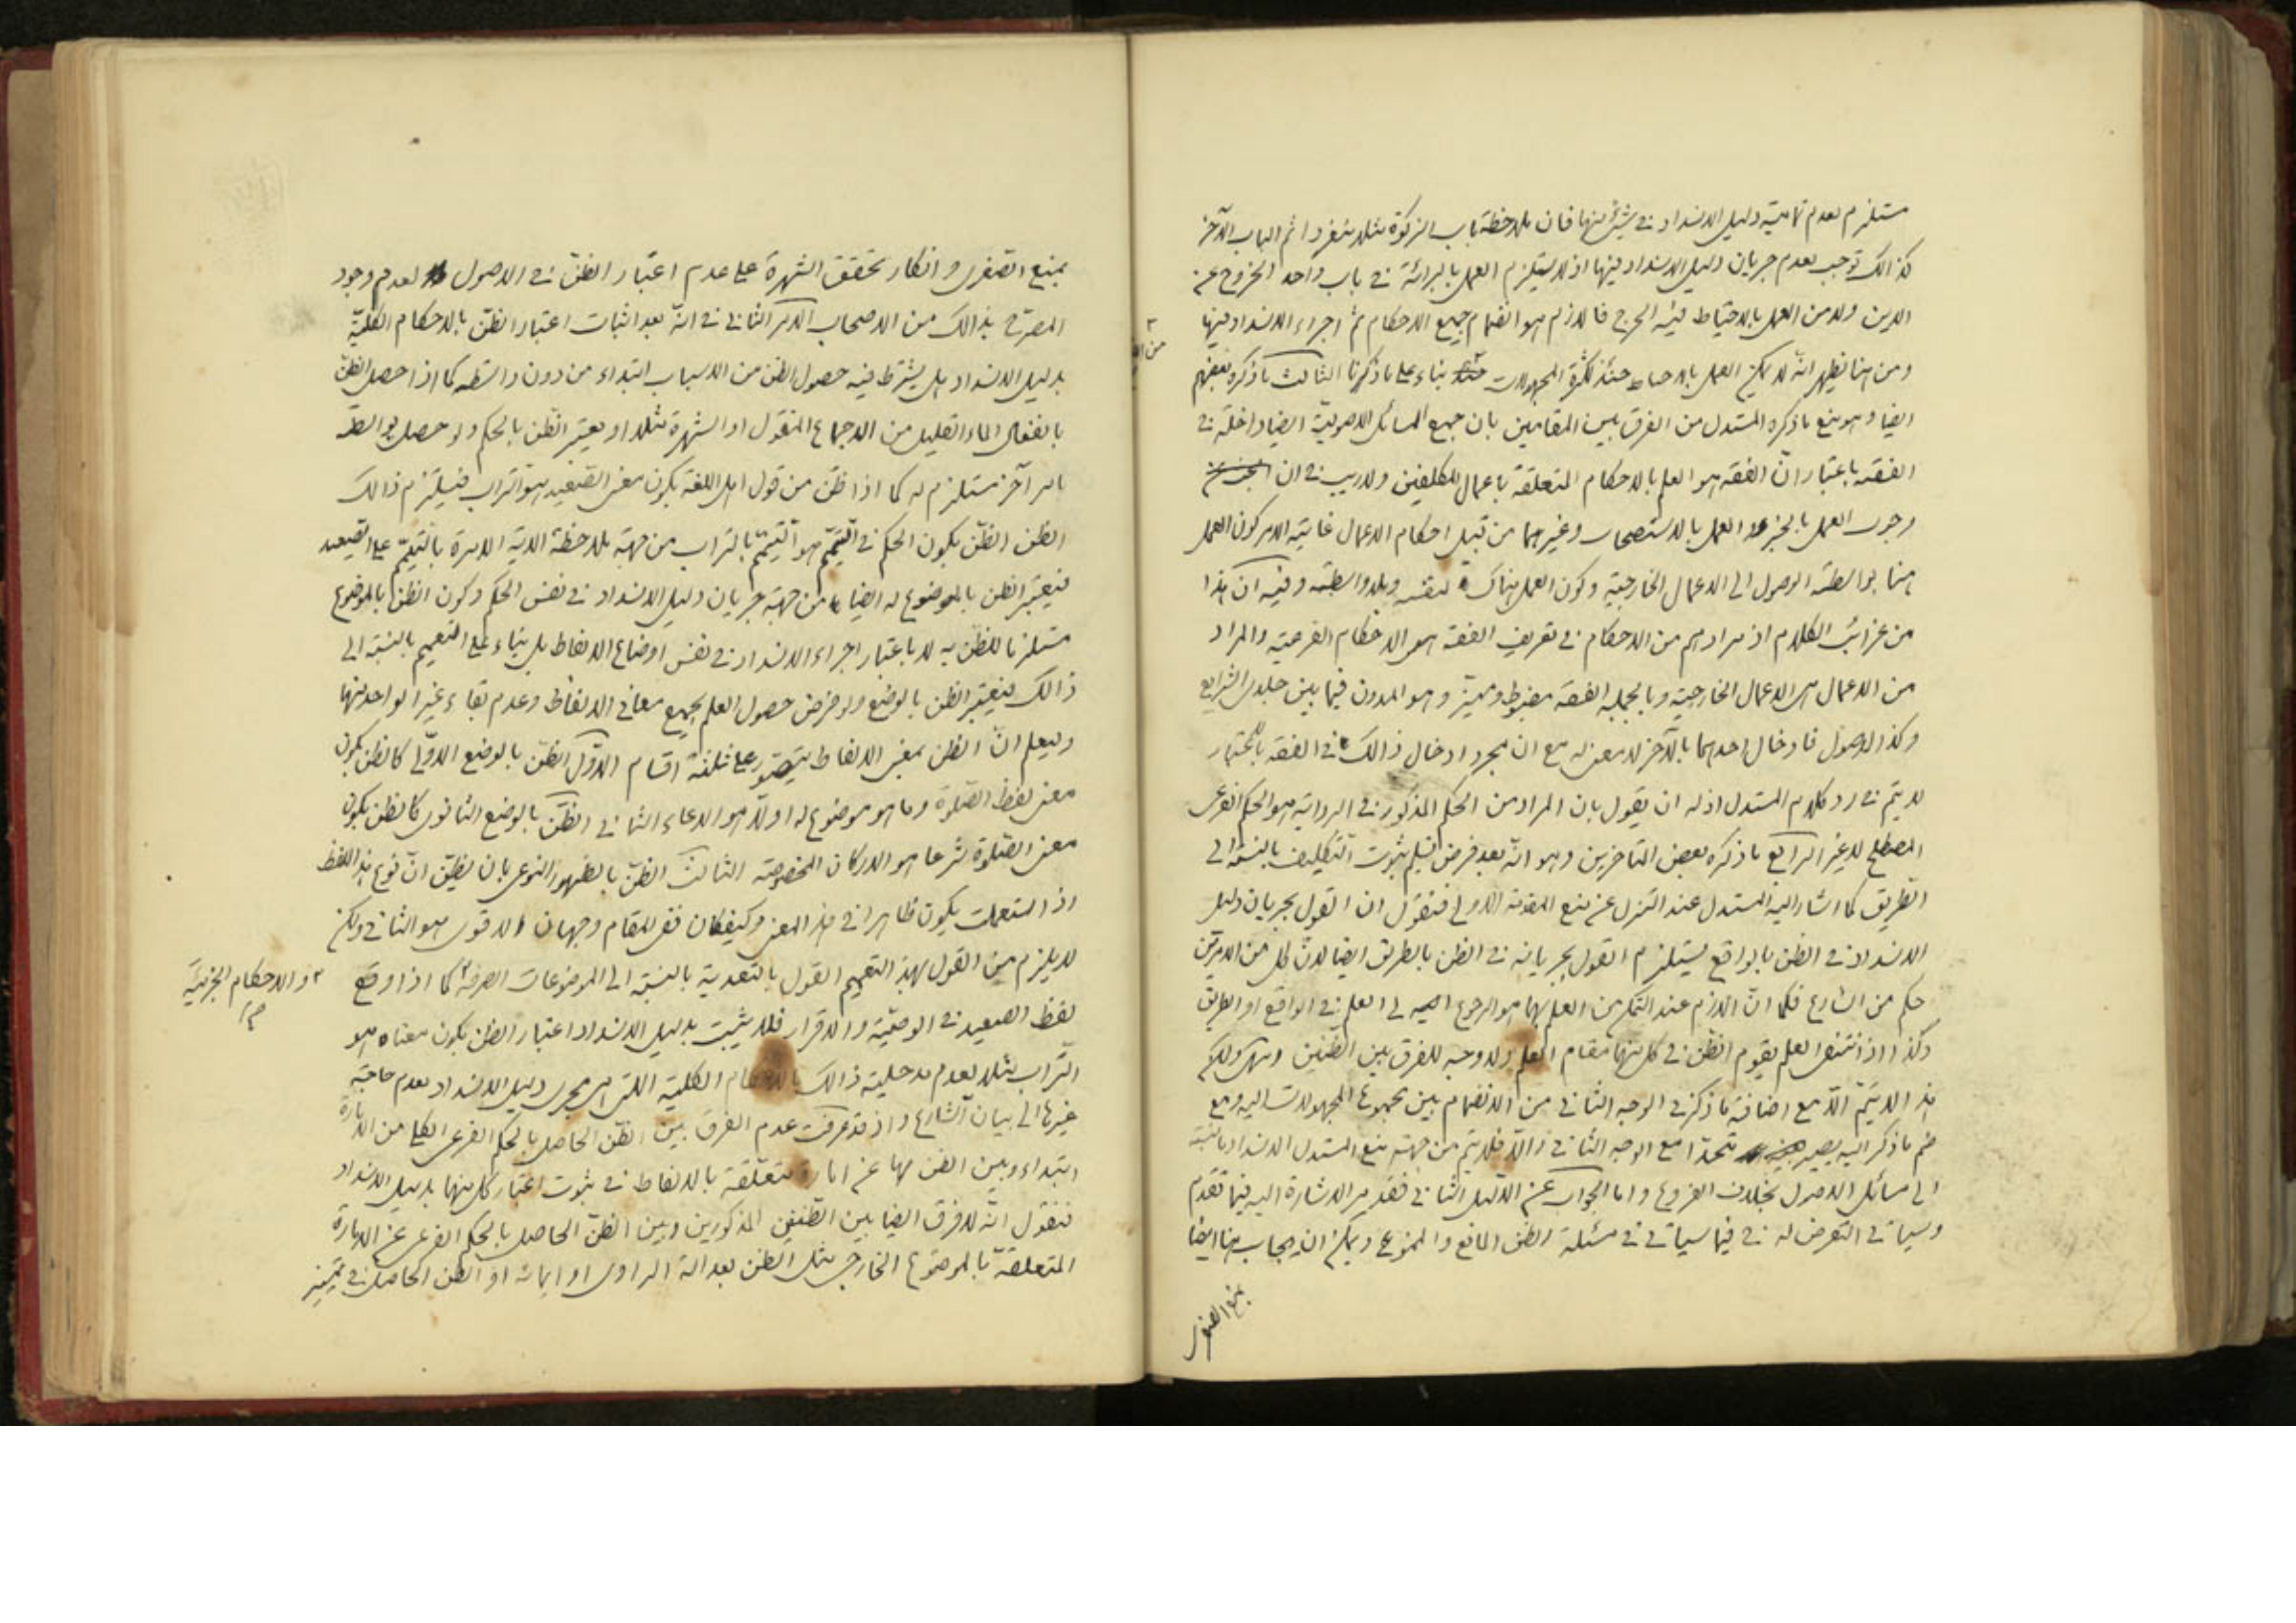 مستلزم لعدم تمامية دليل الانسداد فى شئ منها فان ملاحظة باب الزكوة مثلا منفردا ثم الباب الآخر
كذالك توجب لعدم جريان دليل الانسداد فيها اذ لا يستلزم العمل بالبرائة فى باب واحد الخروج عن
الدين ولا من العمل بالاحتياط فيه الحرج فاللازم هو انضمام جميع الاحكام ثم اجراء الانسداد فيها
ومن هنا يظهر انه لا يمكن العمل بالاحتياط حينئذ لكثرة المجهولات بناء على ما ذكرنا الثالث ما ذكره بعضهم
ايضا وهو منع ما ذكره المستدل من الفرق بين المقامين بان جميع المسائل الاصولية ايضا داخلة فى
الفقه باعتبار انّ الفقه هو العلم بالاحكام المتعلقة باعمال المكلفين ولا ريب فى ان
وجوب العمل بالخبر والعمل بالاستصحاب وغيرهما من قبيل احكام الاعمال غاية الامر كون العمل
هنا بواسطة الوصول الى الاعمال الخارجية وكون العمل هناك بنفسه وبلا واسطة وفيه ان هذا
من غرائب الكلام اذ مرادهم من الاحكام فى تعريف الفقه هو الاحكام الفرعية والمراد
من الاعمال هى الاعمال الخارجية وبالجملة الفقه مضبوط ومميز وهو المدون فيما بين
وكذا الاصول فادخال احدهما بالآخر لا معنى له مع ان مجرد ادخال ذالك فى الفقه
لا يتم فى رد كلام المستدل اذ له ان يقول بان المراد من الحكم المذكور فى الرواية هو الحكم الفرعى
المصطلح لا غير الرابع ما ذكره بعض المتاخرين وهو انه بعد فرض تسليم ثبوت التكليف بالنسبة الى
الطريق كما اشار اليه المستدل عند التنزل عن منع المقدمة الاولى فنقول ان القول بجريان دليل
الانسداد فى الظن بالواقع يستلزم القول بجريانه فى الظن بالطريق ايضا لانّ كل من الامرين
حكم من الشارع فكما انّ اللازم عند التمكن من العلم بهما هو الرجوع الى العلم فى الواقع او الطريق
وكذا اذا انتفى العلم يقوم الظن فى كل منهما مقام العلم ولا وجه للفرق بين الظنين
هذا لا يتم الّا مع اضافة ما ذكر فى الوجه الثانى من الانضمام بين مجموع المجهولات اليه ومع
ضم ما ذكر اليه يصير متحدا مع الوجه الثانى والّا فلا يتم من جهة منع المستدل الانسداد بالنسبة
الى مسائل الاصول بخلاف الفروع واما الجواب عن الدليل الثانى فقد مر الاشارة اليه فيما تقدم
وسياتى التعرض له فى فيما سياتى فى مسئلة الظن المانع والممنوع ويمكن ان يجاب هنا ايضا
بمنع الصغرى
بمنع الصغرى وانكار تحقق الشهرة على عدم اعتبار الظنّ فى الاصول لعدم وجود
المصرّح بذالك من الاصحاب الامر الثانى فى انّه بعد اثبات اعتبار الظنّ بالاحكام الكلّية
بدليل الانسداد هل يشترط فيه حصول الظن من الاسباب ابتداء من دون واسطة كما اذا حصل الظنّ
بانفعال الماء القليل من الاجماع المنقول او الشهرة مثلا او يعتبر الظن بالحكم ولو حصل بواسطة
امر آخر مستلزم له كما اذا ظن من قول اهل اللغة بكون معنى الصعيد هو التراب فيستلزم ذالك
الظن الظنّ بكون الحكم فى التيمّم هو التيمّم بالتراب من جهة ملاحظة الآية الآمرة بالتيمّم على الصعيد
فيعتبر الظن بالموضوع له ايضا من جهة جريان دليل الانسداد فى نفس الحكم وكون الظن بالموضوع
مستلزما للظن به لا باعتبار اجراء الانسداد فى نفس اوضاع الالفاظ بل بناء على التعميم بالنسبة الى
ذالك فيعتبر الظن بالوضع ولو فرض حصول العلم بجميع معانى الالفاظ وعدم بقاء غير الواحد منها
وليعلم انّ الظن بمعنى الالفاظ يتصور على ثلثة اقسام الاوّل الظنّ بالوضع الاوّلى كالظن بكون
معنى لفظ الصّلوة وما هو موضوع له اولا هو الدعاء الثانى الظنّ بالوضع الثانوى كالظن بكون
معنى الصّلوة شرعا هو الاركان المخصوصة الثالث الظنّ بالظهور النوعى بان يظنّ انّ نوع هذا اللفظ
اذا استعملت يكون ظاهرا فى هذا المعنى وكيفكان ففى المقام وجهان الاقوى هو الثانى ولكن
لا يلزم من القول بهذا التعميم القول بالتعدية بالنسبة الى الموضوعات الصرفة كما اذا وقع
والاحكام الجزئية
لفظ الصعيد فى الوصيّة والاقرار فلا يثبت بدليل الانسداد اعتبار الظن بكون معناه هو
التراب مثلا لعدم مدخلية ذالك بالاحكام الكلية اللتى هى مجرى دليل الانسداد لعدم حاجة
غيرها الى بيان الشارع واذ قد عرفت عدم الفرق بين الظنّ الحاصل بالحكم الفرعى الكلى من الامارة
ابتداء وبين الظن بها عن امارة متعلّقة بالالفاظ فى ثبوت اعتبار كل منهما بدليل الانسداد
فنقول انّه لا فرق ايضا بين الظّنين المذكورين وبين الظنّ الحاصل بالحكم الفرعى عن الامارة
المتعلقة بالموضوع الخارجى مثل الظن بعدالة الراوى او ايمانه او الظن الحاصل فى تمييز